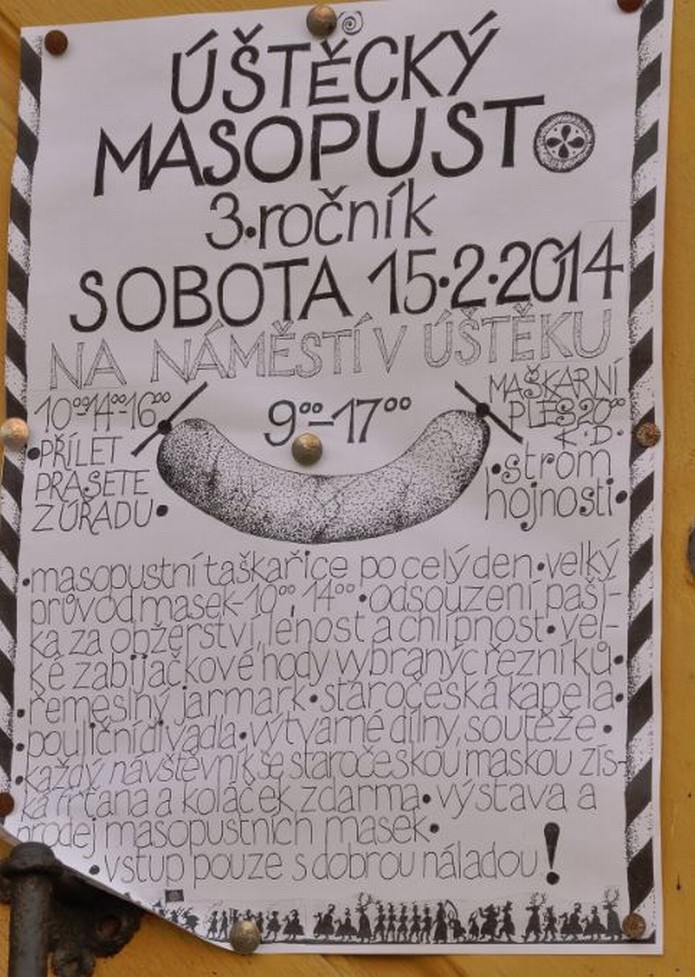 ÚŠTĚCKÝ
MASOPUST
3. ročník
SOBOTA 15.2.2014
NA NÁMĚSTÍ V ÚŠTĚKU
10⁰⁰ 14⁰⁰ 16⁰⁰
•PŘÍLET
PRASETE
Z ÚŘADU•
9⁰⁰–17⁰⁰
MAŠKARNÍ
PLES 20⁰⁰
K.D.
•strom
hojnosti•
•masopustní taškařice po celý den•velký
průvod masek-10⁰⁰, 14⁰⁰•odsouzení paší-
ka za obžerství, lenost a chlípnost•vel-
ké zabijačkové hody vybranýc řezníků•
•řemeslný jarmark•staročeská kapela•
•pouliční divadla•výtvarné dílny, soutěže•
•každý návštěvník se staročeskou maskou zís-
ká frťana a koláček zdarma•výstava a
prodej masopustních masek•
•vstup pouze s dobrou náladou!